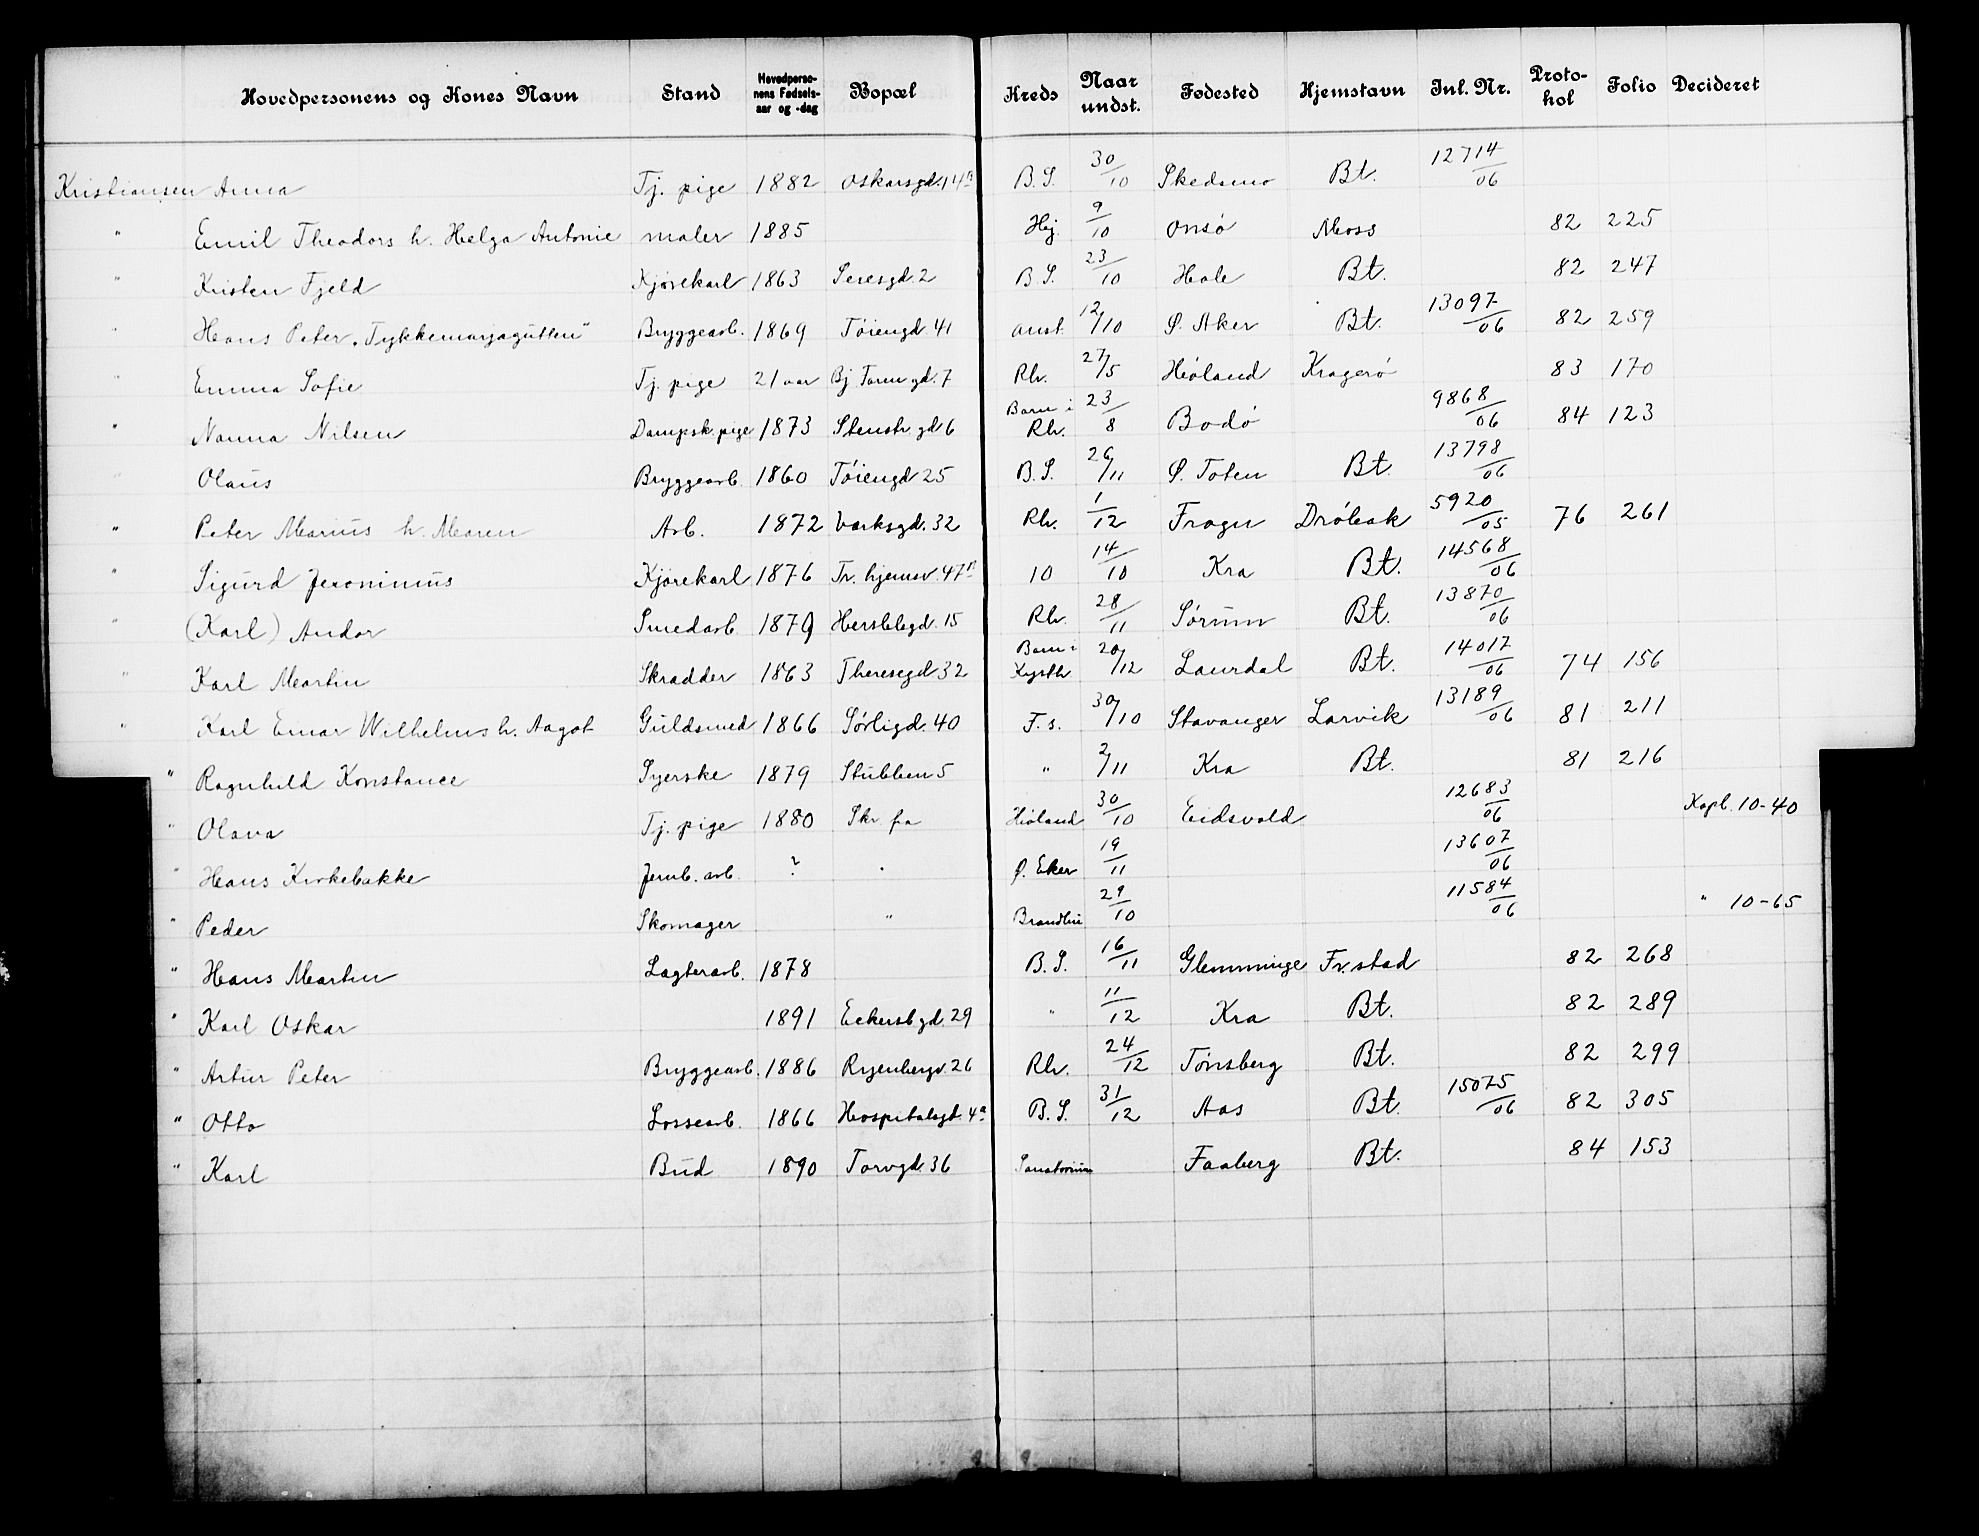 Hovedpersonens og Kones Navn Stand Hovedpersonens Fødselsaar og -dag Bopæl Kreds Naar undst. Fødested Hjemstavn Inl. Nr. Protokol Folio Decideret
Kristiansen Anna Tj. pige 1882 Oskarsgd. 14 B. S. 30/10 Skedsmo Bt. 12714/06
" Emil Theodors h. Helga Antonie maler 1885 Hej. 9/10 Onsö Moss 82 225
" Kristen Fjeld Kjörekarl 1863 Seresgd. 2 B. S. 23/10 Hole Bt. 82 247
" Hans Peter „Tykkemarjagutten" Bryggearb. 1869 Töiengd. 41 anst. 12/10 Ø. Aker Bt. 13097/06 82 259
" Emma Sofie Tj. pige 21 aar Bj. Farm gd. 7 Rh. 27/5 Höland Kragerö 83 170
" Nanna Nilsen Dampsk. pige 1873 Stenstr. gd 6 Barn i Rh. 23/8 Bodö 9868/06 84 123
" Olaus Bryggearb. 1860 Töiengd 25 B. S. 26/11 Ø. Toten Bt. 13798/06
" Peter Marius h. Maren Arb. 1872 Værksgd. 32 Rh. 1/12 Frogn Dröbak 5920/05 76 261
" Sigurd Jeronimus Kjörekarl 1876 Tr. hjemsv. 47 10 14/10 Kra Bt. 14568/06
" (Karl) Andor Smedarb. 1879 Herslebgd. 15 Rh. 28/11 Sörum Bt. 13870/06
" Karl Martin Skrædder 1863 Theresegd 32 Barn i 20/12 Laurdal Bt. 14017/06 74 156
" Karl Einar Wilhelms h. Aagot Guldsmed 1866 Sörligd. 40 F. s. 30/10 Stavanger Larvik 13189/06 81 211
" Ragnhild Konstance Syerske 1879 Stubben 5 " 2/11 Kra Bt. 81 216
" Olava Tj. pige 1880 Skr. fra Höland 30/10 Eidsvold 12683/06 Kopl. 10-40
" Hans Kirkebakke Jernb. arb. ? " Ø. Eker 19/11 13607/06
" Peder Skomager " 29/10 11584/06 " 10-65
" Hans Martin Lægterarb. 1878 B. S. 16/11 Glemminge Fr.stad 82 268
" Karl Oskar 1891 Eckersbgd. 29 " 11/12 Kra Bt. 82 289
" Artur Peter Bryggearb. 1886 Ryenbergv. 26 Rh. 24/12 Tönsberg Bt. 82 299
" Otto Lossearb. 1866 Hospitalsgt. 4a B. S. 31/12 Aas Bt. 15075/06 82 305
" Karl Bud 1890 Torvgd. 36 Sanatorium Faaberg Bt. 84 153